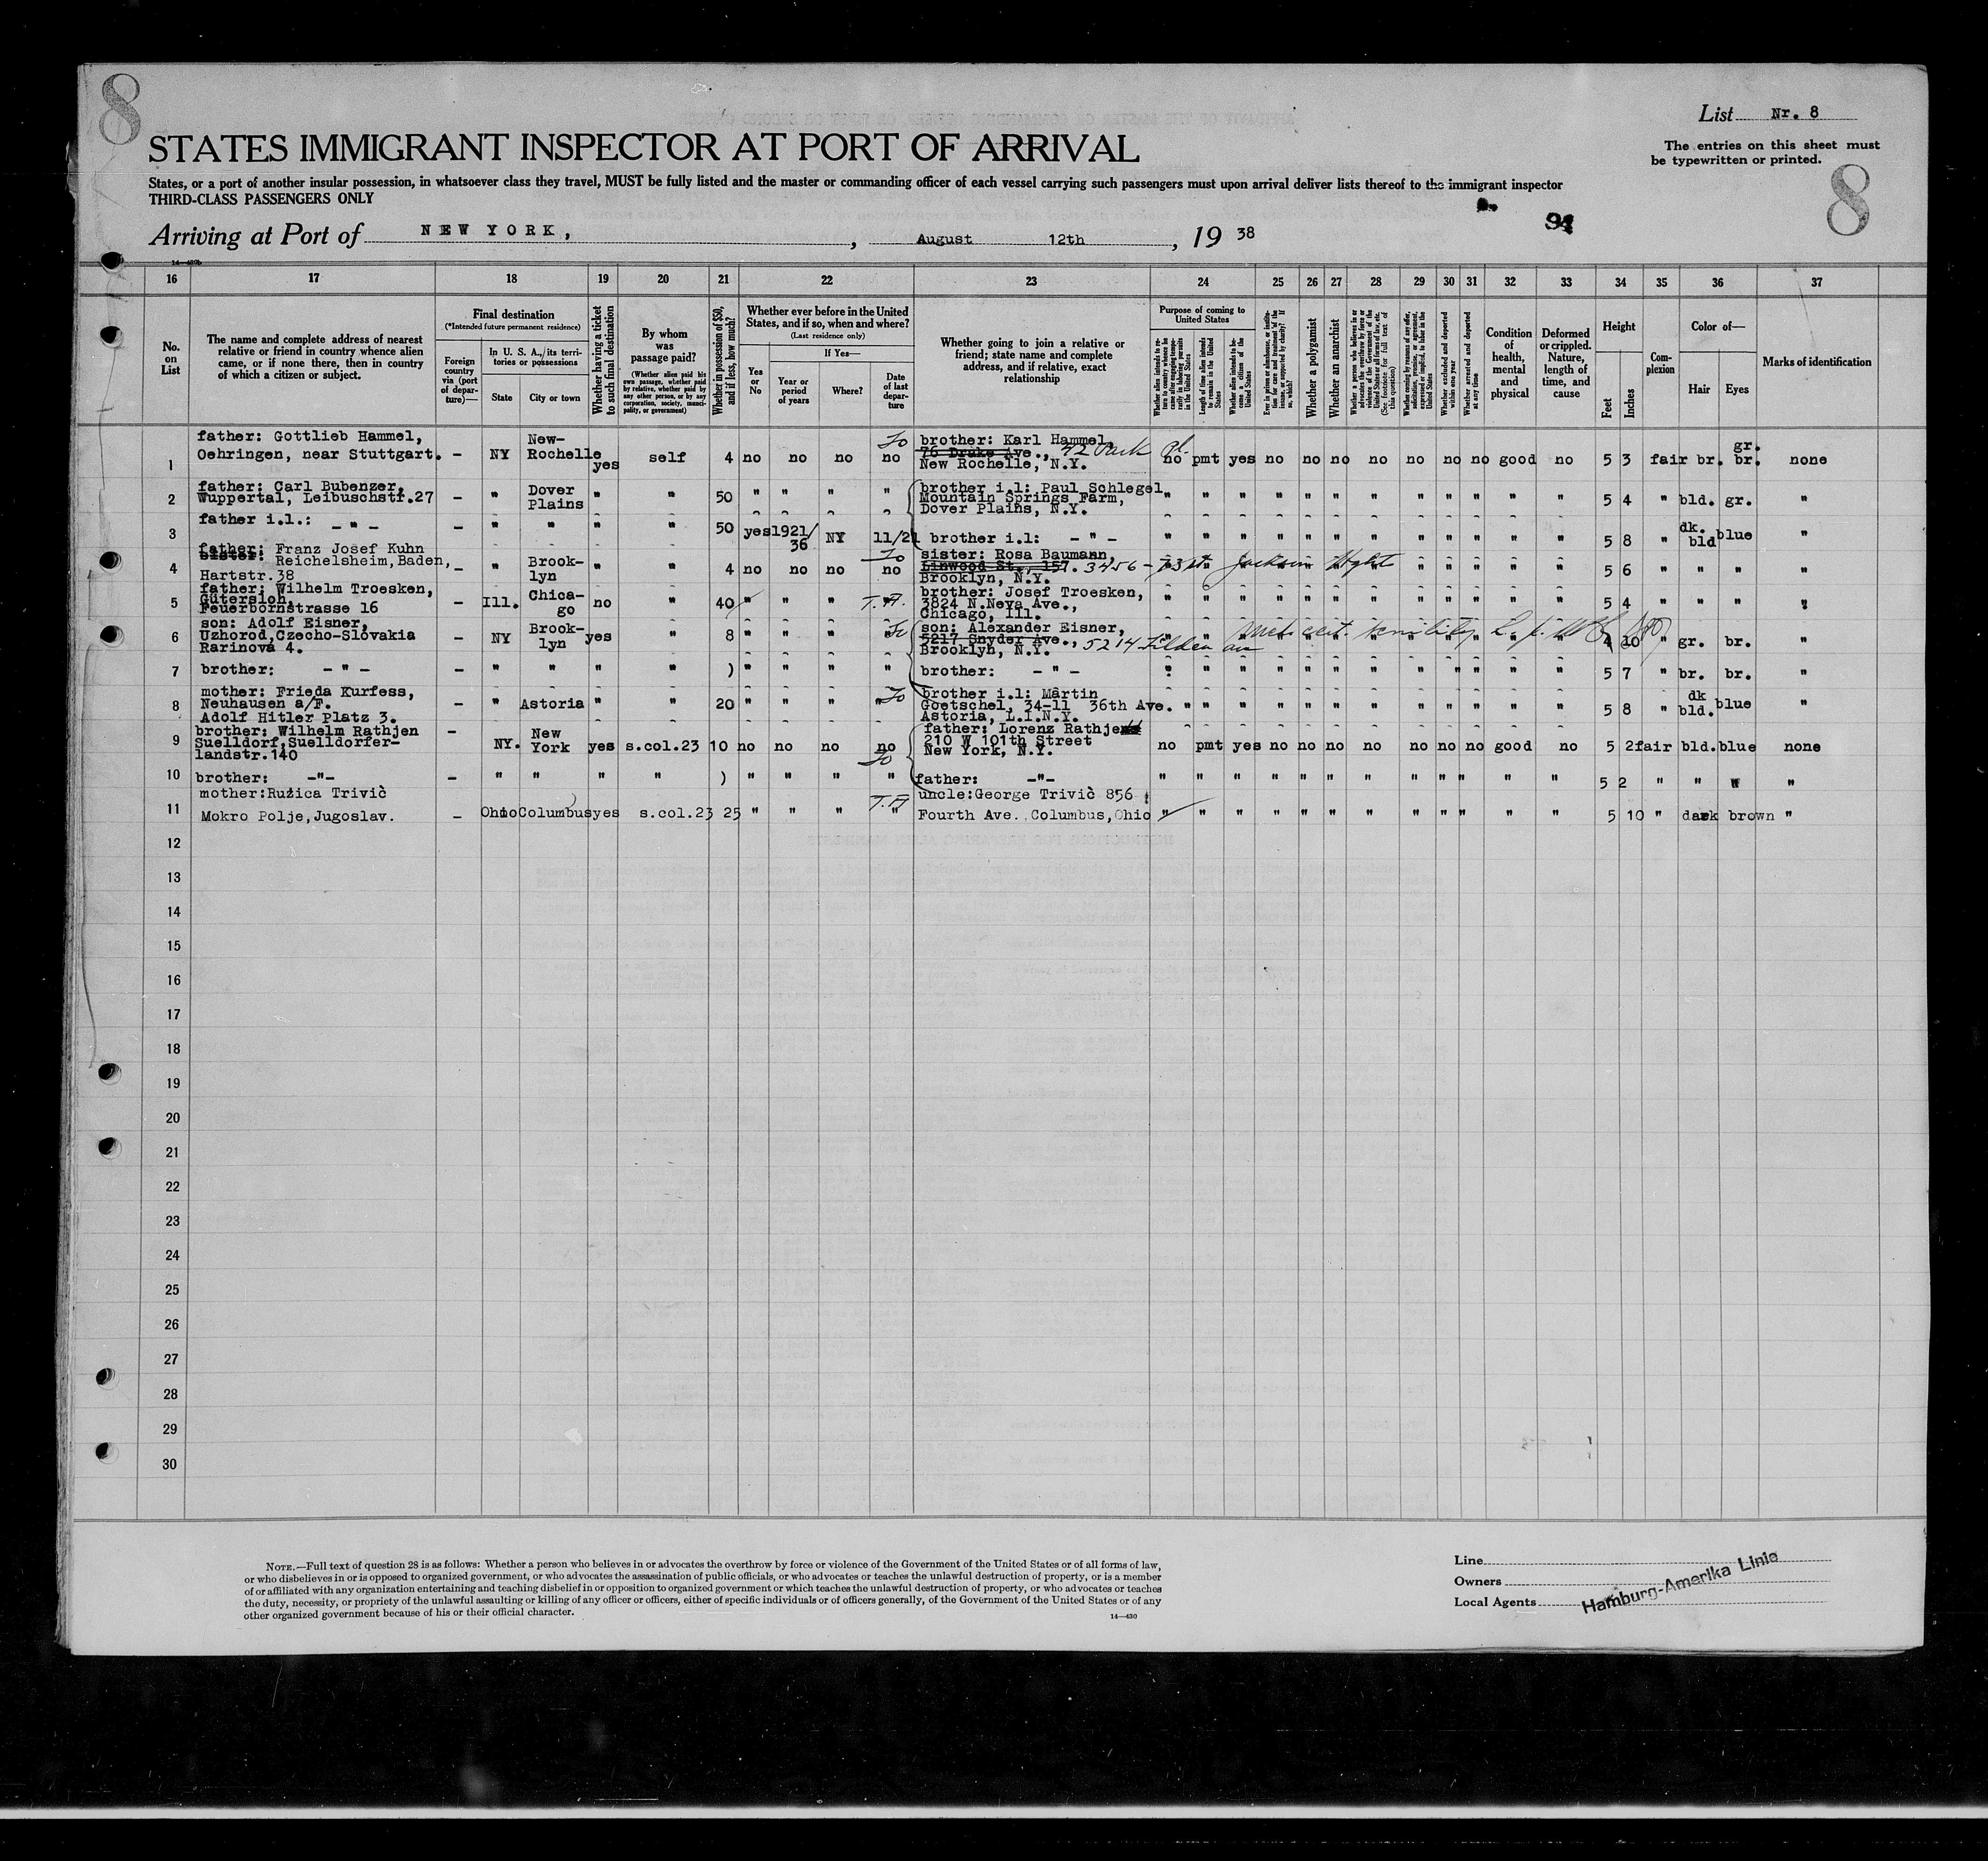 8
List Nr. 8
STATES IMMIGRANT INSPECTOR AT PORT OF ARRIVAL
The entries on this sheet must
be typewritten or printed.
States, or a port of another insular possession, in whatsoever class they travel, MUST be fully listed and the master or commanding officer of each vessel carrying such passengers must upon arrival deliver lists thereof to the immigrant inspector
THIRD-CLASS PASSENGERS ONLY
8
Arriving at Port of NEW YORK, , August 12th , 19 38
16 17 18 19 20 21 22 23 24 25 26 27 28 29 30 31 32 33 34 35 36 37
No. on List
The name and complete address of nearest
relative or friend in country whence alien
came, or if none there, then in country
of which a citizen or subject.
Final destination
(*Intended future permanent residence)
Foreign country via (port of departure)—
In U. S. A., its territories or possessions
State
City or town
Whether having a ticket to such final destination
By whom was passage paid?
(Whether alien paid his own passage, whether paid by relative, whether paid by any other person, or by any corporation, society, municipality, or government)
Whether in possession of $50, and if less, how much?
Whether ever before in the United States, and if so, when and where?
(Last residence only)
Yes or No
If Yes—
Year or period of years
Where?
Date of last departure
Whether going to join a relative or friend; state name and complete address, and if relative, exact relationship
Purpose of coming to United States
Whether alien intends to return to country whence he came after engaging temporarily in laboring pursuits in the United States
Length of time alien intends to remain in the United States
Whether alien intends to become a citizen of the United States
Ever in prison or almshouse, or institution for care and treatment of the insane, or supported by charity? If so, which?
Whether a polygamist
Whether an anarchist
Whether a person who believes in or advocates the overthrow by force or violence of the Government of the United States or all forms of law, etc. (See footnote for full text of this question)
Whether coming by reasons of any offer, solicitation, promise, or agreement, expressed or implied, to labor in the United States
Whether excluded and deported within one year
Whether arrested and deported at any time
Condition of health, mental and physical
Deformed or crippled. Nature, length of time, and cause
Height
Feet
Inches
Complexion
Color of—
Hair
Eyes
Marks of identification
father: Gottlieb Hammel, New- brother: Karl Hammel, gr.
1 Oehringen, near Stuttgart. – NY Rochelle yes self 4 no no no no 76 Drake Ave., 42 Park Pl. no pmt yes no no no no no no no good no 5 3 fair br. br. none
New Rochelle, N.Y.
father: Carl Bubenzer, Dover brother i.l: Paul Schlegel
2 Wuppertal, Leibuschstr.27 – " Plains " " 50 " " " " Mountain Springs Farm, " " " " " " " " " " " " 5 4 " bld. gr. "
Dover Plains, N.Y.
3 father i.l.: – " – – " " " " 50 yes 1921/36 NY 11/21 brother i.l: – " – " " " " " " " " " " " " 5 8 " dk. bld blue "
father: Franz Josef Kuhn sister: Rosa Baumann,
sister: Reichelsheim, Baden, Linwood St., 157. 3456 – 73 st. Jackson Hght
4 Hartstr.38 – " Brook-lyn " " 4 no no no no Brooklyn, N.Y. " " " " " " 5 6 " " " "
father: Wilhelm Troesken, brother: Josef Troesken,
5 Gütersloh, – Ill. Chica-go no " 40 " " " T.A. 3824 N.Neva Ave., " " " " " " " " " " " " 5 4 " " " "
Feuerbornstrasse 16 Chicago, Ill.
son: Adolf Eisner, son: Alexander Eisner,
6 Uzhorod,Czecho-Slovakia – NY Brook-lyn yes " 8 " " " " 5217 Snyder Ave., 5214 Tilden ave med. cert. senility 4 10 " gr. br. "
Rarinova 4. Brooklyn, N.Y.
7 brother: – " – – " " " " ) " " " " brother: – " – " " " " " " " " " " " " 5 7 " br. br. "
mother: Frieda Kurfess, brother i.l: Martin dk
8 Neuhausen a/F. – " Astoria " " 20 " " " " Goetschel, 34-11 36th Ave. " " " " " " " " " " " " 5 8 " bld. blue "
Adolf Hitler Platz 3. Astoria, L.I.N.Y.
brother: Wilhelm Rathjen father: Lorenz Rathje
9 Suelldorf,Suelldorfer- – NY. New York yes s.col.23 10 no no no no 210 W 101th Street no pmt yes no no no no no no no good no 5 2 fair bld. blue none
landstr.140 New York, N.Y.
10 brother: –"– – " " " " ) " " " " father: –"– " " " " " " " " " " " " 5 2 " " " "
mother:Ružica Trivič uncle:George Trivič 856
11 Mokro Polje,Jugoslav. – Ohio Columbus yes s.col.23 25 " " " T.A. " Fourth Ave. Columbus,Ohio " " " " " " " " " " " " 5 10 " dark brown "
12
13
14
15
16
17
18
19
20
21
22
23
24
25
26
27
28
29
30
NOTE.—Full text of question 28 is as follows: Whether a person who believes in or advocates the overthrow by force or violence of the Government of the United States or of all forms of law,
or who disbelieves in or is opposed to organized government, or who advocates the assassination of public officials, or who advocates or teaches the unlawful destruction of property, or is a member
of or affiliated with any organization entertaining and teaching disbelief in or opposition to organized government or which teaches the unlawful destruction of property, or who advocates or teaches
the duty, necessity, or propriety of the unlawful assaulting or killing of any officer or officers, either of specific individuals or of officers generally, of the Government of the United States or of any
other organized government because of his or their official character.
14—430
Line
Owners
Local Agents
Hamburg-Amerika Linie